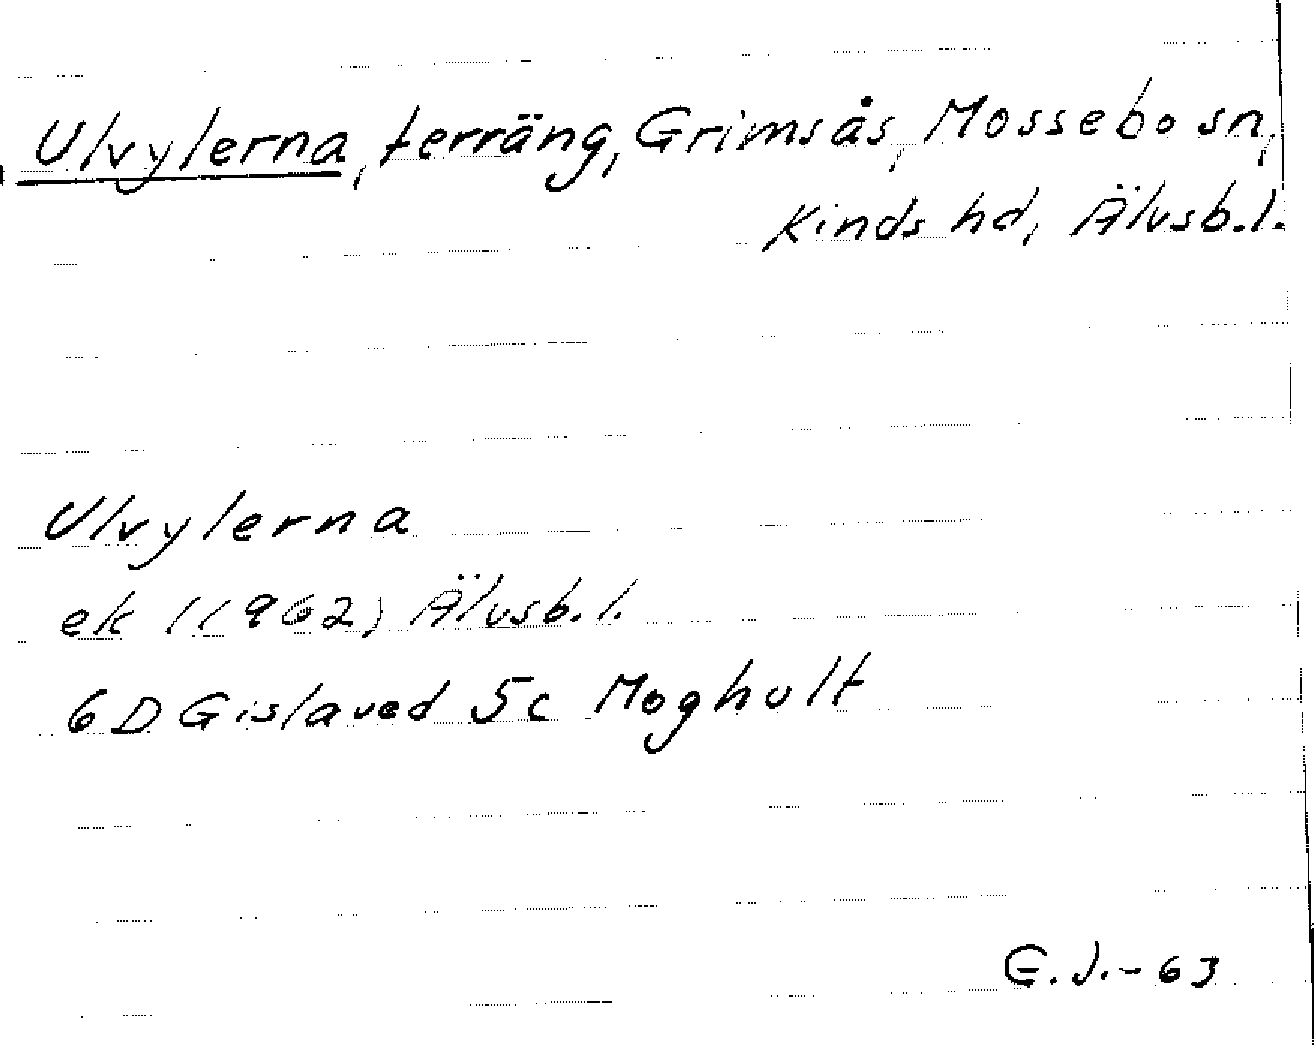 Ulvylerna, terräng, Grimsås, Mossebo sn,
Kinds hd, Älvsb.l.
Ulvylerna
ek (1962) Älvsb.l.
6D Gislaved 5c Moghult
E.J.-63